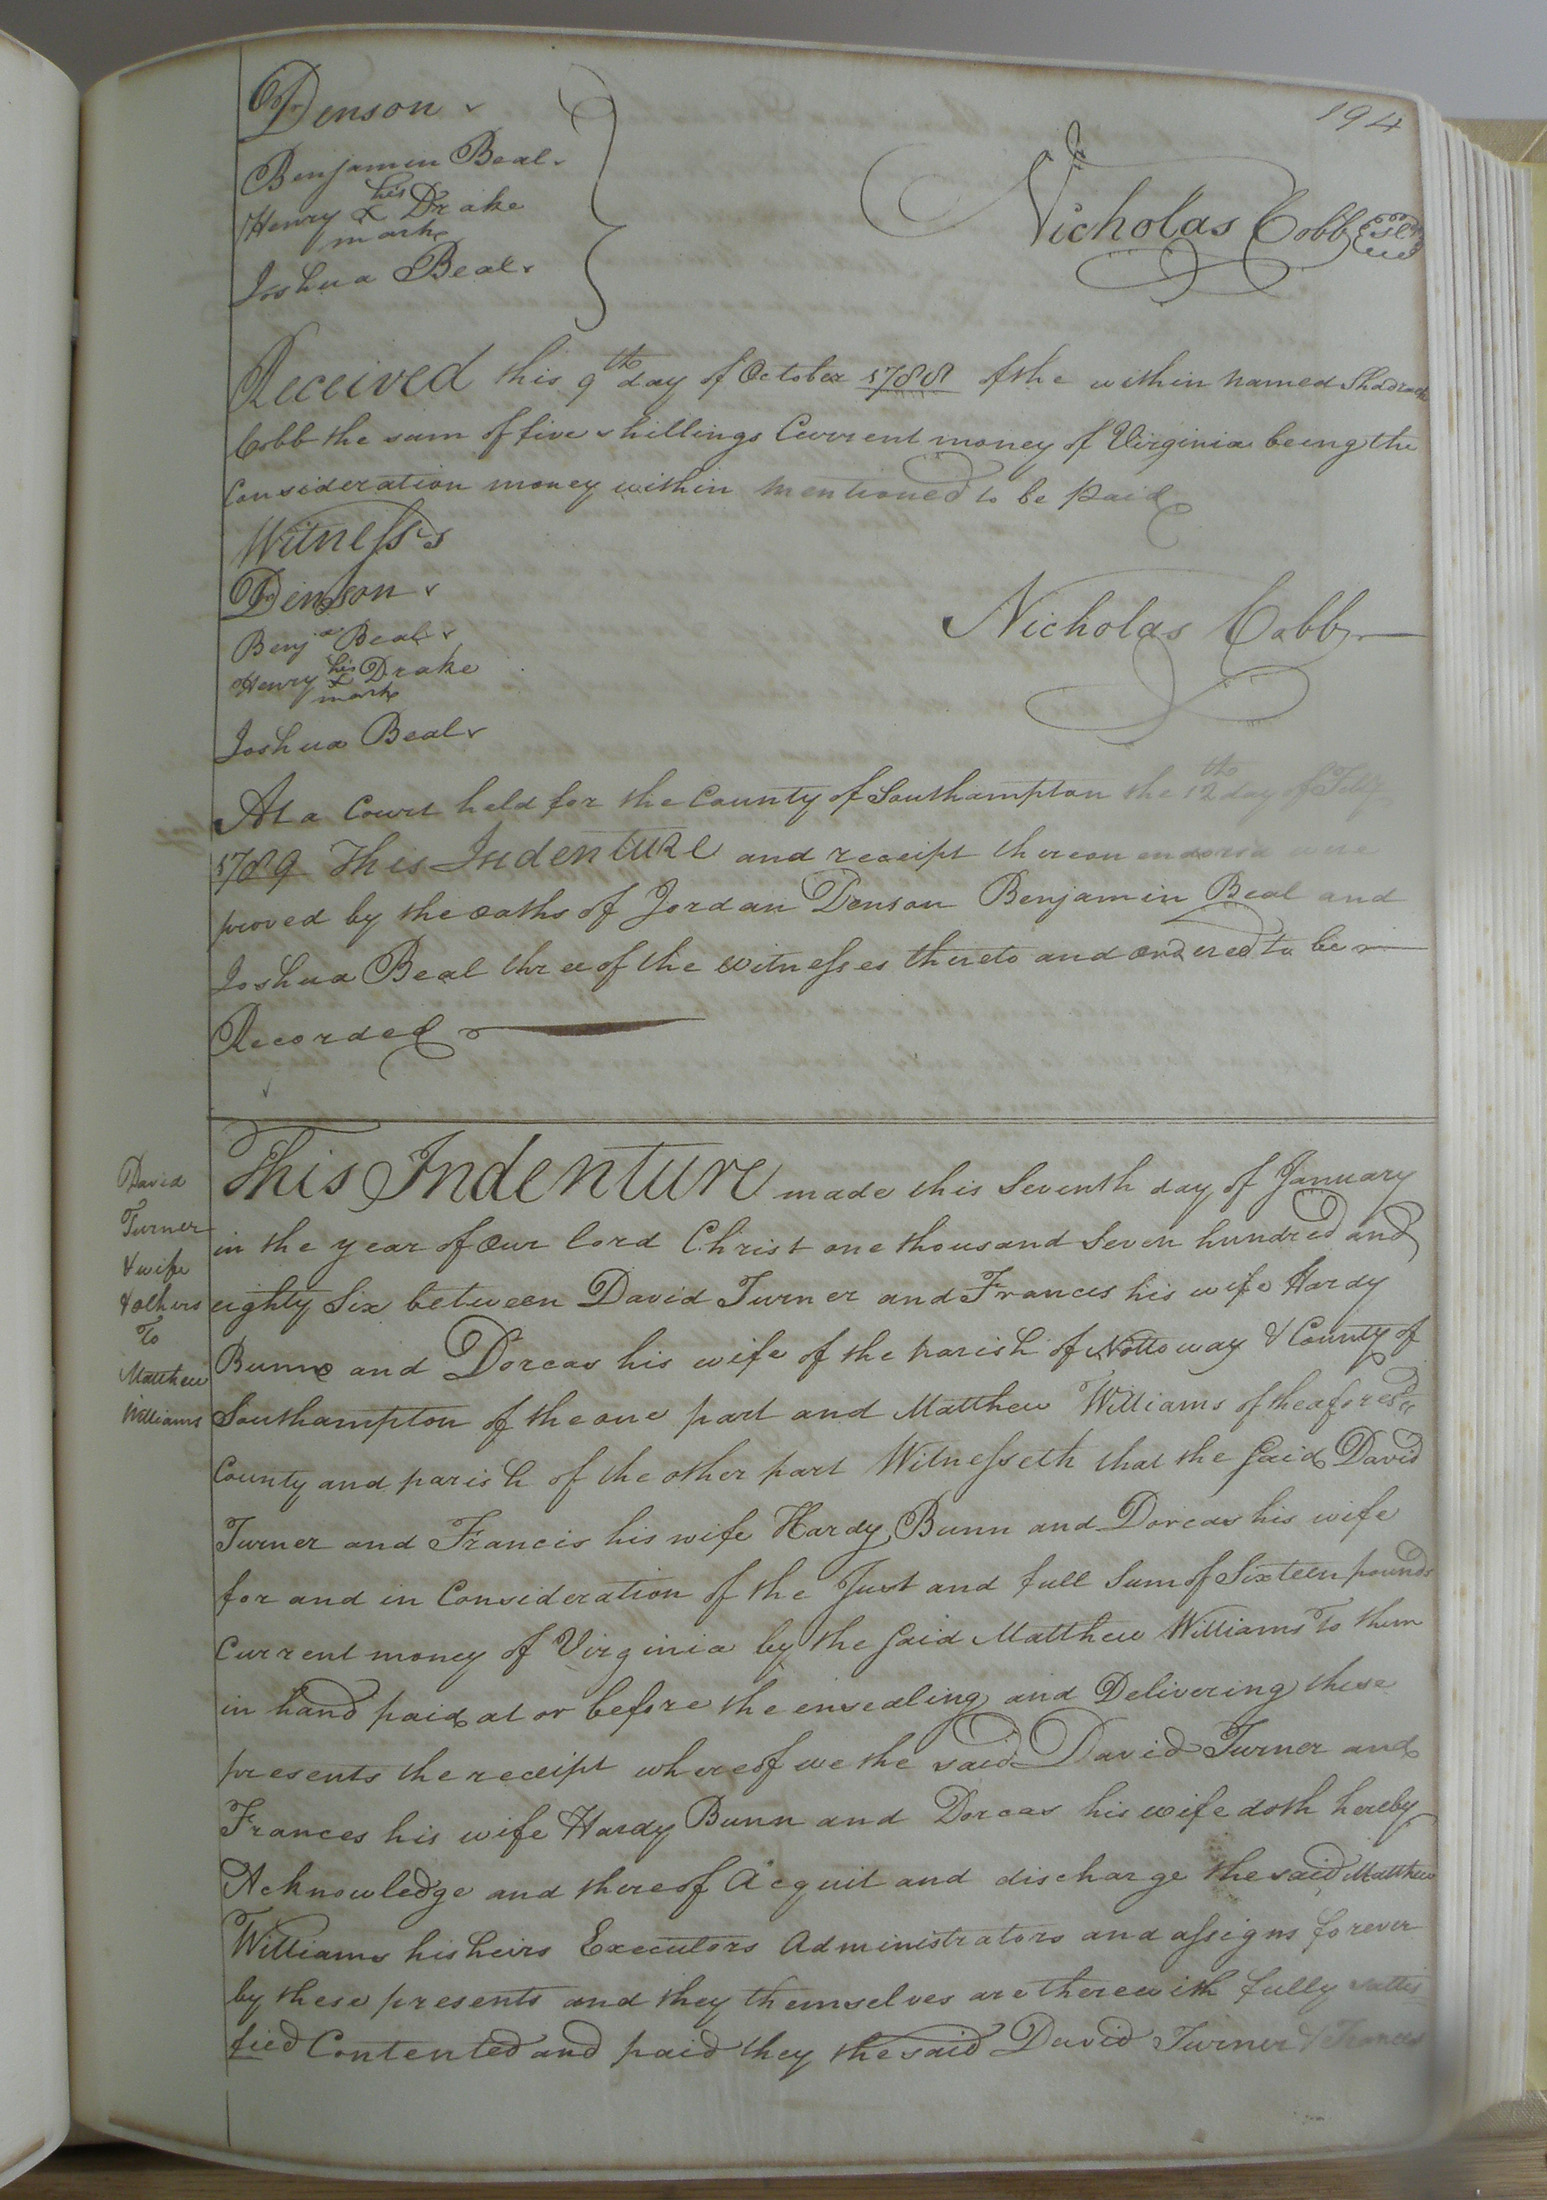 194
Jo. Denson
Benjamin Beal
Henry his x mark Drake
Joshua Beal
Nicholas Cobb
Received this 9th day of October 1788 of the within named Shadrach
Cobb the sum of five shillings Current money of Virginia being the
Consideration money within mentioned to be Paid
Witness's
Jo. Denson
Nicholas Cobb
Benja Beal
Henry his x mark Drake
Joshua Beal
At a Court held for the County of Southampton the 12th day of Feby
1789 This Indenture and receipt thereon endorsd were
proved by the oaths of Jordan Denson Benjamin Beal and
Joshua Beal three of the witnesses thereto and ordered to be
Recorded
David
Turner
& wife
& others
To
Matthew
Williams
This Indenture made this Seventh day of January
in the year of our lord Christ one thousand Seven hundred and
eighty Six between David Turner and Frances his wife Hardy
Bunn and Dorcas his wife of the parish of Nottoway & County of
Southampton of the one part and Matthew Williams of the aforesd
County and parish of the other part Witnesseth that the said David
Turner and Francis his wife Hardy Bunn and Dorcas his wife
for and in Consideration of the Just and full Sum of Sixteen pounds
Current money of Virginia by the said Matthew Williams To them
in hand paid at or before the ensealing and Delivering these
presents the receipt whereof we the said David Turner and
Frances his wife Hardy Bunn and Dorcas his wife doth hereby
Acknowledge and thereof Acquit and discharge the said Matthew
Williams his heirs Executors Administrators and assigns forever
by these presents and they themselves are therewith fully sattis
fied Contented and paid they the said David Turner & Frances